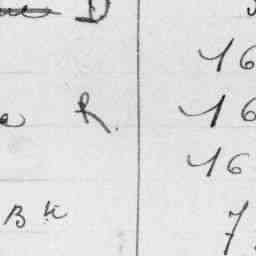 D
16
e R. 16
16
B K 7